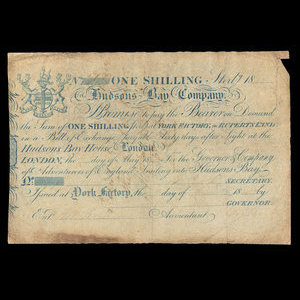 ONE SHILLING Sterlg 18
Hudsons Bay Company.
Promise to pay the Bearer on Demand
the Sum of ONE SHILLING St. at YORK FACTORY, in RUPERTS LAND
in a Bill of Exchange Payable Sixty days after Sight at the
Hudsons Bay House London
LONDON, the day of 18 For the Governor & Company
of Adventurers of England trading into Hudsons Bay.
No.
SECRETARY.
Issued at York Factory, the day of 18 by
GOVERNOR.
Entd. Accountant